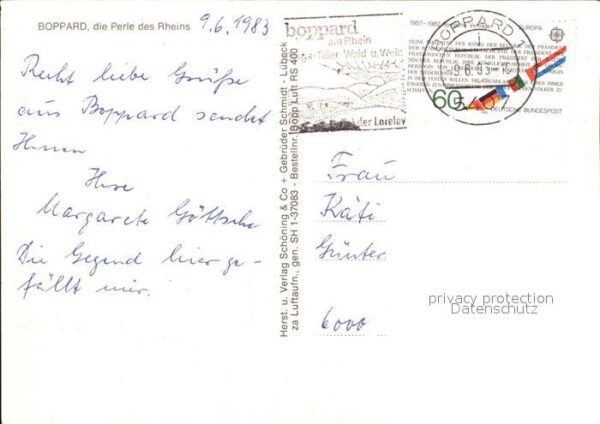 BOPPARD, die Perle des Rheins
9.6.1983
Recht liebe Grüße
aus Boppard sendet
Ihnen
Ihre
Margarete Göttsche
Die Gegend hier ge-
fällt mir.
Herst. u. Verlag Schöning & Co + Gebrüder Schmidt - Lübeck
za Luftaufn., gen. SH 1-37083 - Bestellnr. Bopp Luft RS
boppard
am Rhein
Täler Wald u. Wein
der Loreley
BOPPARD 1
9.6.83
1957-1982
EUROPA
60
5401
DEUTSCHE BUNDESPOST
Frau
Käti
Günter
privacy protection
Datenschutz
6000